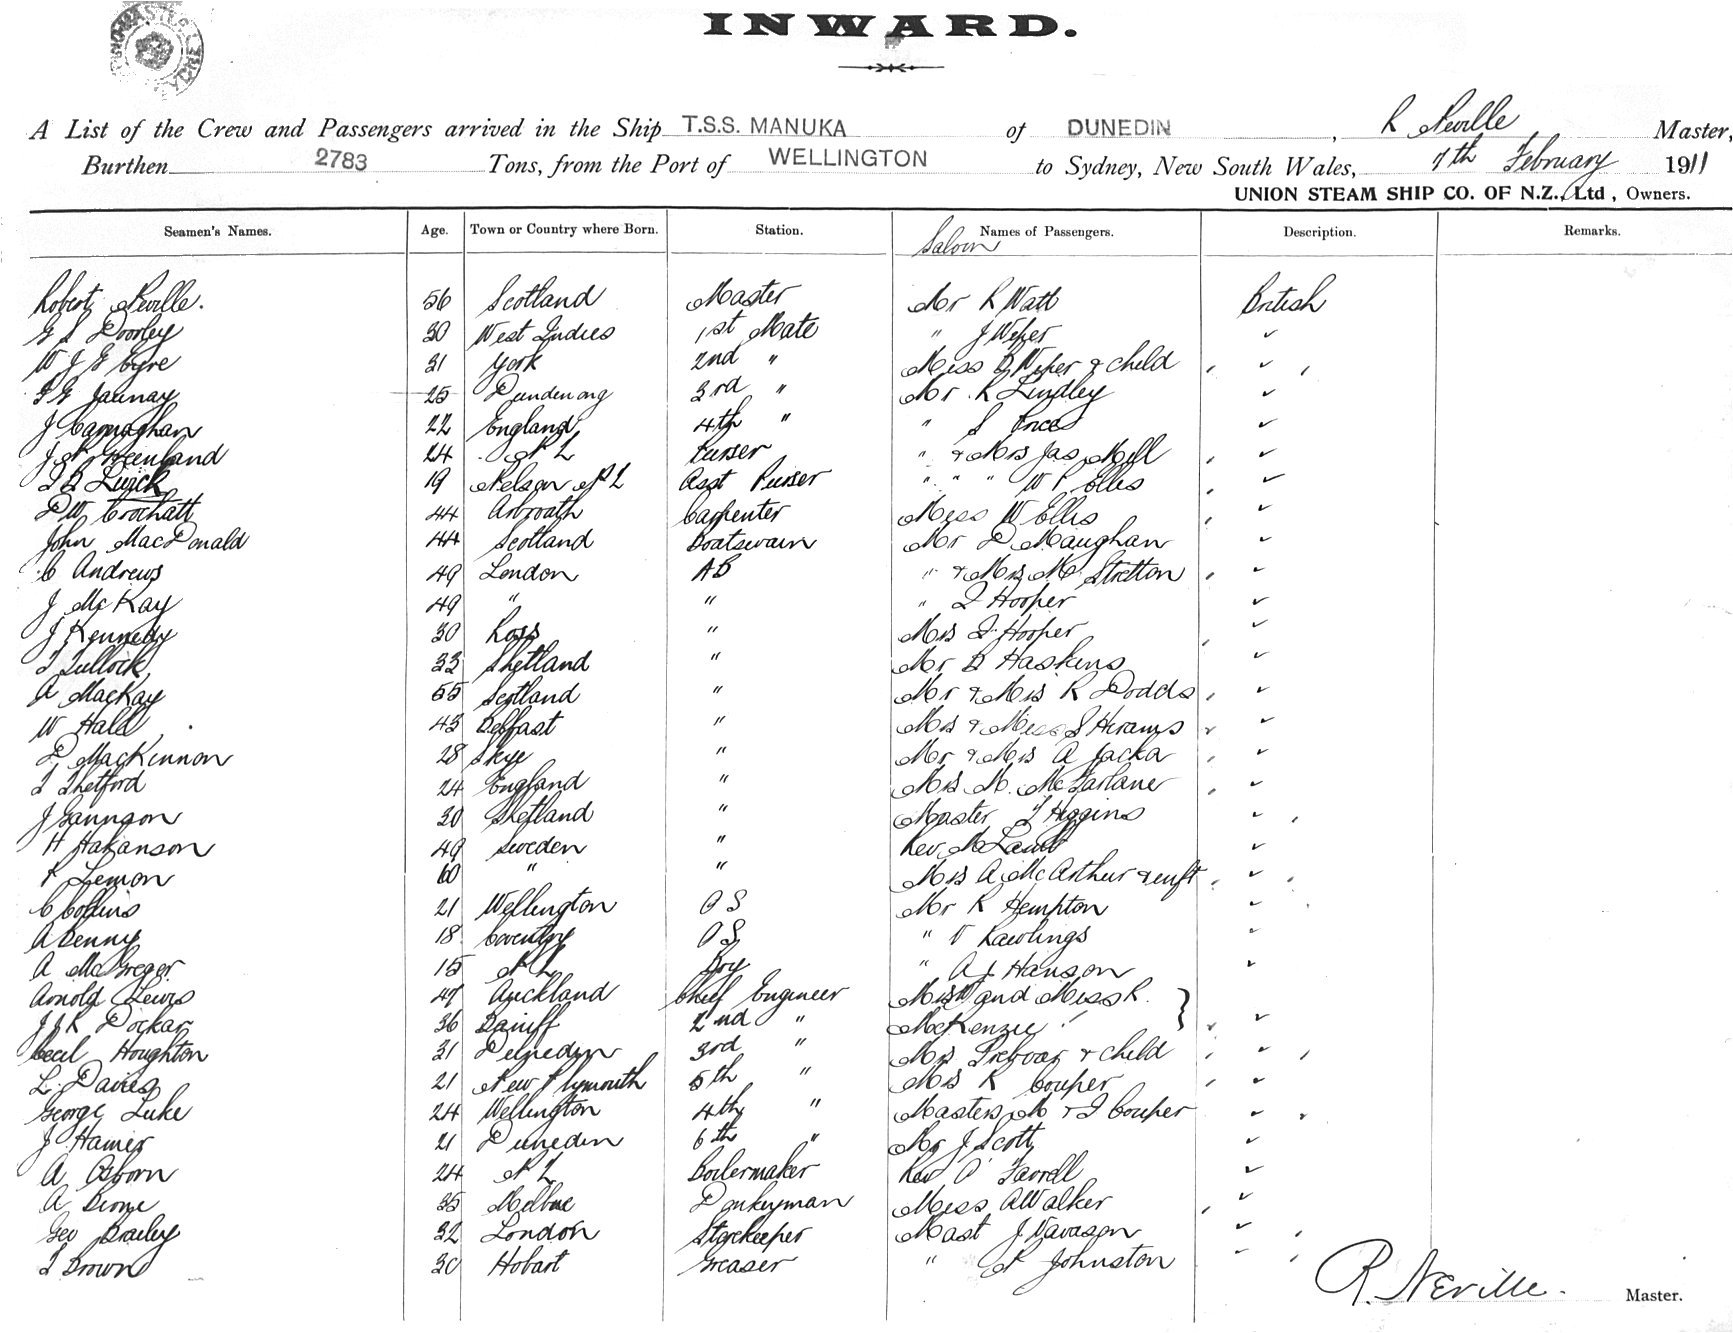 INWARD.
A List of the Crew and Passengers arrived in the Ship T.S.S. MANUKA of DUNEDIN, R Neville Master,
Burthen 2783 Tons, from the Port of WELLINGTON to Sydney, New South Wales, 7th February 1911
UNION STEAM SHIP CO. OF N.Z., Ltd, Owners.
Seamen's Names. Age. Town or Country where Born. Station. Names of Passengers. Description. Remarks.
Saloon
Robert Neville. 56 Scotland Master Mr R Watt British
G S Doorley 30 West Indies 1st Mate " J
W J G Eyre 31 York 2nd " Miss & child
Jaunay 25 Dandenong 3rd " Mr R Lindley
J Carnaghan 22 England 4th " " S
J Greenland 24 N Z Purser " & Mrs Jas Mill
19 Nelson N Z Asst Purser " " " W Ellis
D W Crochatt 44 Arbroath Carpenter Miss W Ellis
John MacDonald 44 Scotland Boatswain Mr D Maughan
C Andrews 49 London AB " & Mrs M Stretton
J McKay 49 " " " Hooper
J Kennedy 30 Ross " Mrs Hooper
T Tullock 33 Shetland " Mr Haskins
A MacKay 55 Scotland " Mr & Mrs R Dodds
W Hald 43 Belfast " Mrs & Miss S Hirams
D MacKinnon 28 Skye " Mr & Mrs A Jacka
T Thetford 24 England " Mrs M. McFarlane
J Gannson 30 Shetland " Master Higgins
H Hakanson 49 Sweden " Rev Lamb
Lemon 60 " " Mrs A McArthur & inft
C Collins 21 Wellington O S Mr R Hempton
A Denny 18 Coventry O S " V Rawlings
A McGregor 15 N Z Boy " A J Hanson
Arnold Lewis 47 Auckland Chief Engineer Mrs and Miss R.
J J R Dockar 36 Banff 2nd " McKenzie
Cecil Houghton 31 Dunedin 3rd " Mrs Trebvar & child
L. Davies 21 New Plymouth 5th " Mrs R Couper
George Luke 24 Wellington 4th " Masters M & J Couper
J Hamer 21 Dunedin 6th " Mr J Scott
A Osborn 24 N Z Boilermaker Rev O'Farrell
A 35 Melbne Donkeyman Miss A Walker
Geo Brailey 32 London Storekeeper Mast J Vavason
Brown 30 Hobart Greaser " Johnston
R. Neville. Master.